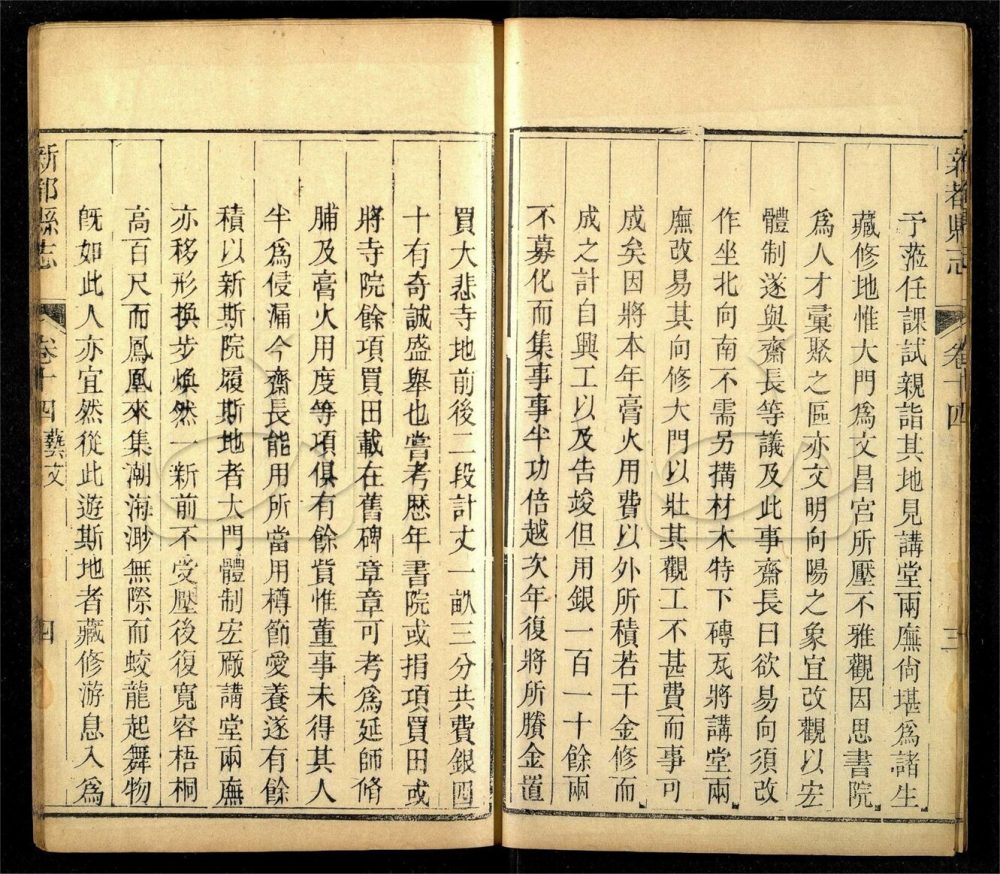 新都縣志 卷十四 三
予蒞任課試親詣其地見講堂兩廡尙堪爲諸生
藏修地惟大門爲文昌宮所壓不雅觀因思書院
爲人才彙聚之區亦文明向陽之象宜改觀以宏
體制遂與齋長等議及此事齋長曰欲易向須改
作坐北向南不需另搆材木特下磚瓦將講堂兩
廡改易其向修大門以壯其觀工不甚費而事可
成矣因將本年膏火用費以外所積若干金修而
成之計自興工以及告竣但用銀一百一十餘兩
不募化而集事事半功倍越次年復將所賸金置
買大悲寺地前後二段計丈一畝三分共費銀四
十有奇誠盛舉也嘗考歷年書院或捐項買田或
將寺院餘項買田載在舊碑章章可考爲延師脩
脯及膏火用度等項俱有餘貲惟董事未得其人
半爲侵漏今齋長能用所當用樽節愛養遂有餘
積以新斯院履斯地者大門體制宏厰講堂兩廡
亦移形換步煥然一新前不受壓後復寬容梧桐
高百尺而鳳凰來集潮海渺無際而蛟龍起舞物
旣如此人亦宜然從此遊斯地者藏修游息入爲
新都縣志 卷十四藝文 四